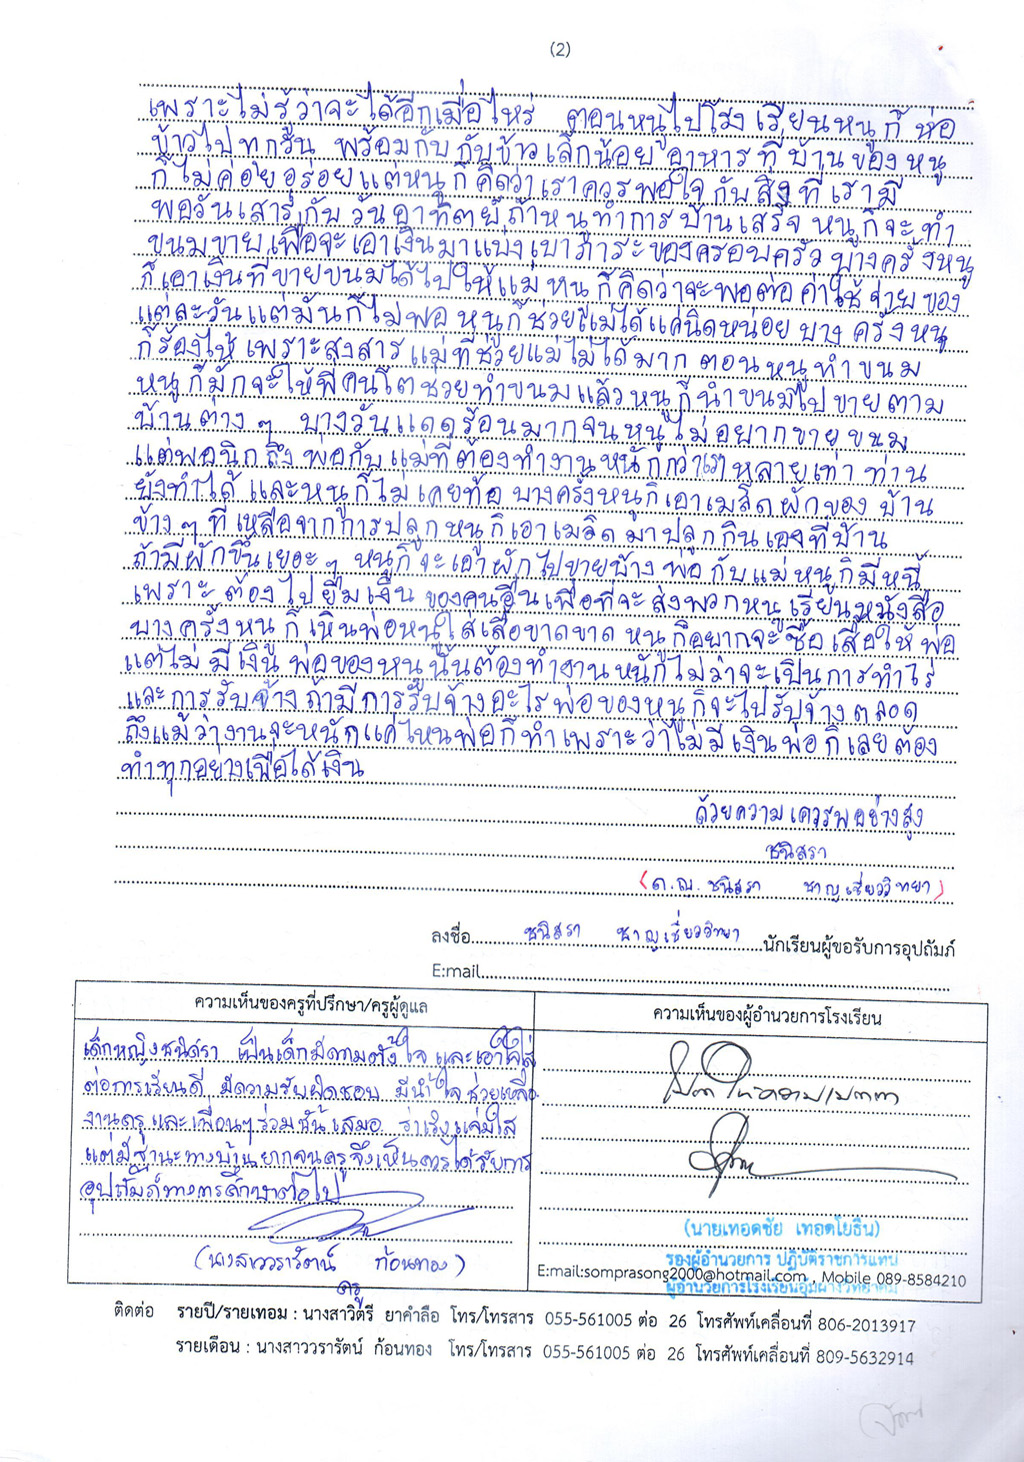 (2)
เพราะไม่รู้ว่าจะได้อีกเมื่อไหร่ ตอนหนูไปโรงเรียนหนูก็ห่อ
ข้าวไปทุกวัน พร้อมกับกับข้าวเล็กน้อย อาหารที่บ้านของหนู
ก็ไม่ค่อยอร่อยแต่หนูก็คิดว่าเราควรพอใจกับสิ่งที่เรามี
พอวันเสาร์กับวันอาทิตย์ถ้าหนูทำการบ้านเสร็จ หนูก็จะทำ
ขนมขายเพื่อจะเอาเงินมาแบ่งเบาภาระของครอบครัว บางครั้งหนู
ก็เอาเงินที่ขายขนมได้ไปให้แม่ หนูก็คิดว่าจะพอต่อค่าใช้จ่ายของ
แต่ละวันแต่มันก็ไม่พอ หนูก็ช่วยแม่ได้แค่นิดหน่อย บางครั้งหนู
ก็ร้องไห้ เพราะสงสารแม่ที่ช่วยแม่ไม่ได้มาก ตอนหนูทำขนม
หนูก็มักจะให้พี่คนโตช่วยทำขนมแล้วหนูก็นำขนมไปขายตาม
บ้านต่าง ๆ บางวันแดดร้อนมากจนหนูไม่อยากขายขนม
แต่พอนึกถึงพ่อกับแม่ที่ต้องทำงานหนักกว่าเราหลายเท่า ท่าน
ยังทำได้ และหนูก็ไม่เคยท้อ บางครั้งหนูก็เอาเมล็ดผักของบ้าน
ข้าง ๆ ที่เหลือจากการปลูกหนูก็เอาเมล็ดมาปลูกกินเองที่บ้าน
ถ้ามีผักขึ้นเยอะ ๆ หนูก็จะเอาผักไปขายบ้าง พ่อกับแม่หนูก็มีหนี้
เพราะต้องไปยืมเงินของคนอื่นเพื่อที่จะส่งพวกหนูเรียนหนังสือ
บางครั้งหนูก็เห็นพ่อหนูใส่เสื้อขาดขาด หนูก็อยากจะซื้อเสื้อให้พ่อ
แต่ไม่มีเงิน พ่อของหนูนั้นต้องทำงานหนักไม่ว่าจะเป็นการทำไร่
และการรับจ้าง ถ้ามีการรับจ้างอะไรพ่อของหนูก็จะไปรับจ้างตลอด
ถึงแม้ว่างานจะหนักแค่ไหนพ่อก็ทำเพราะว่าไม่มีเงินพ่อก็เลยต้อง
ทำทุกอย่างเพื่อได้เงิน
ด้วยความเคารพอย่างสูง
ชนิสรา
(ด.ญ. ชนิสรา ชาญเชี่ยววิทยา)
ลงชื่อ ชนิสรา ชาญเชี่ยววิทยา นักเรียนผู้ขอรับการอุปถัมภ์
E:mail
ความเห็นของครูที่ปรึกษา/ครูผู้ดูแล
เด็กหญิงชนิสรา เป็นเด็กมีความตั้งใจ และเอาใจใส่
ต่อการเรียนดี มีความรับผิดชอบ มีน้ำใจช่วยเหลือ
งานครู และเพื่อนๆร่วมชั้นเสมอ ร่าเริงแจ่มใส
แต่มีฐานะทางบ้านยากจนครูจึงเห็นควรได้รับการ
อุปถัมภ์ทางการศึกษาต่อไป
(นางสาววรารัตน์ ก้อนทอง)
ครู
ความเห็นของผู้อำนวยการโรงเรียน
(นายเทอดชัย เทอดโยธิน)
รองผู้อำนวยการ ปฏิบัติราชการแทน
ผู้อำนวยการโรงเรียนอุ้มผางวิทยาคม
E:mail:somprasong2000@hotmail.com , Mobile 089-8584210
ติดต่อ รายปี/รายเทอม : นางสาวิตรี ยาคำลือ โทร/โทรสาร 055-561005 ต่อ 26 โทรศัพท์เคลื่อนที่ 806-2013917
รายเดือน : นางสาววรารัตน์ ก้อนทอง โทร/โทรสาร 055-561005 ต่อ 26 โทรศัพท์เคลื่อนที่ 809-5632914